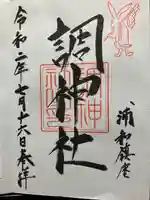 浦和鎮座
調神社
令和二年七月十六日奉拝